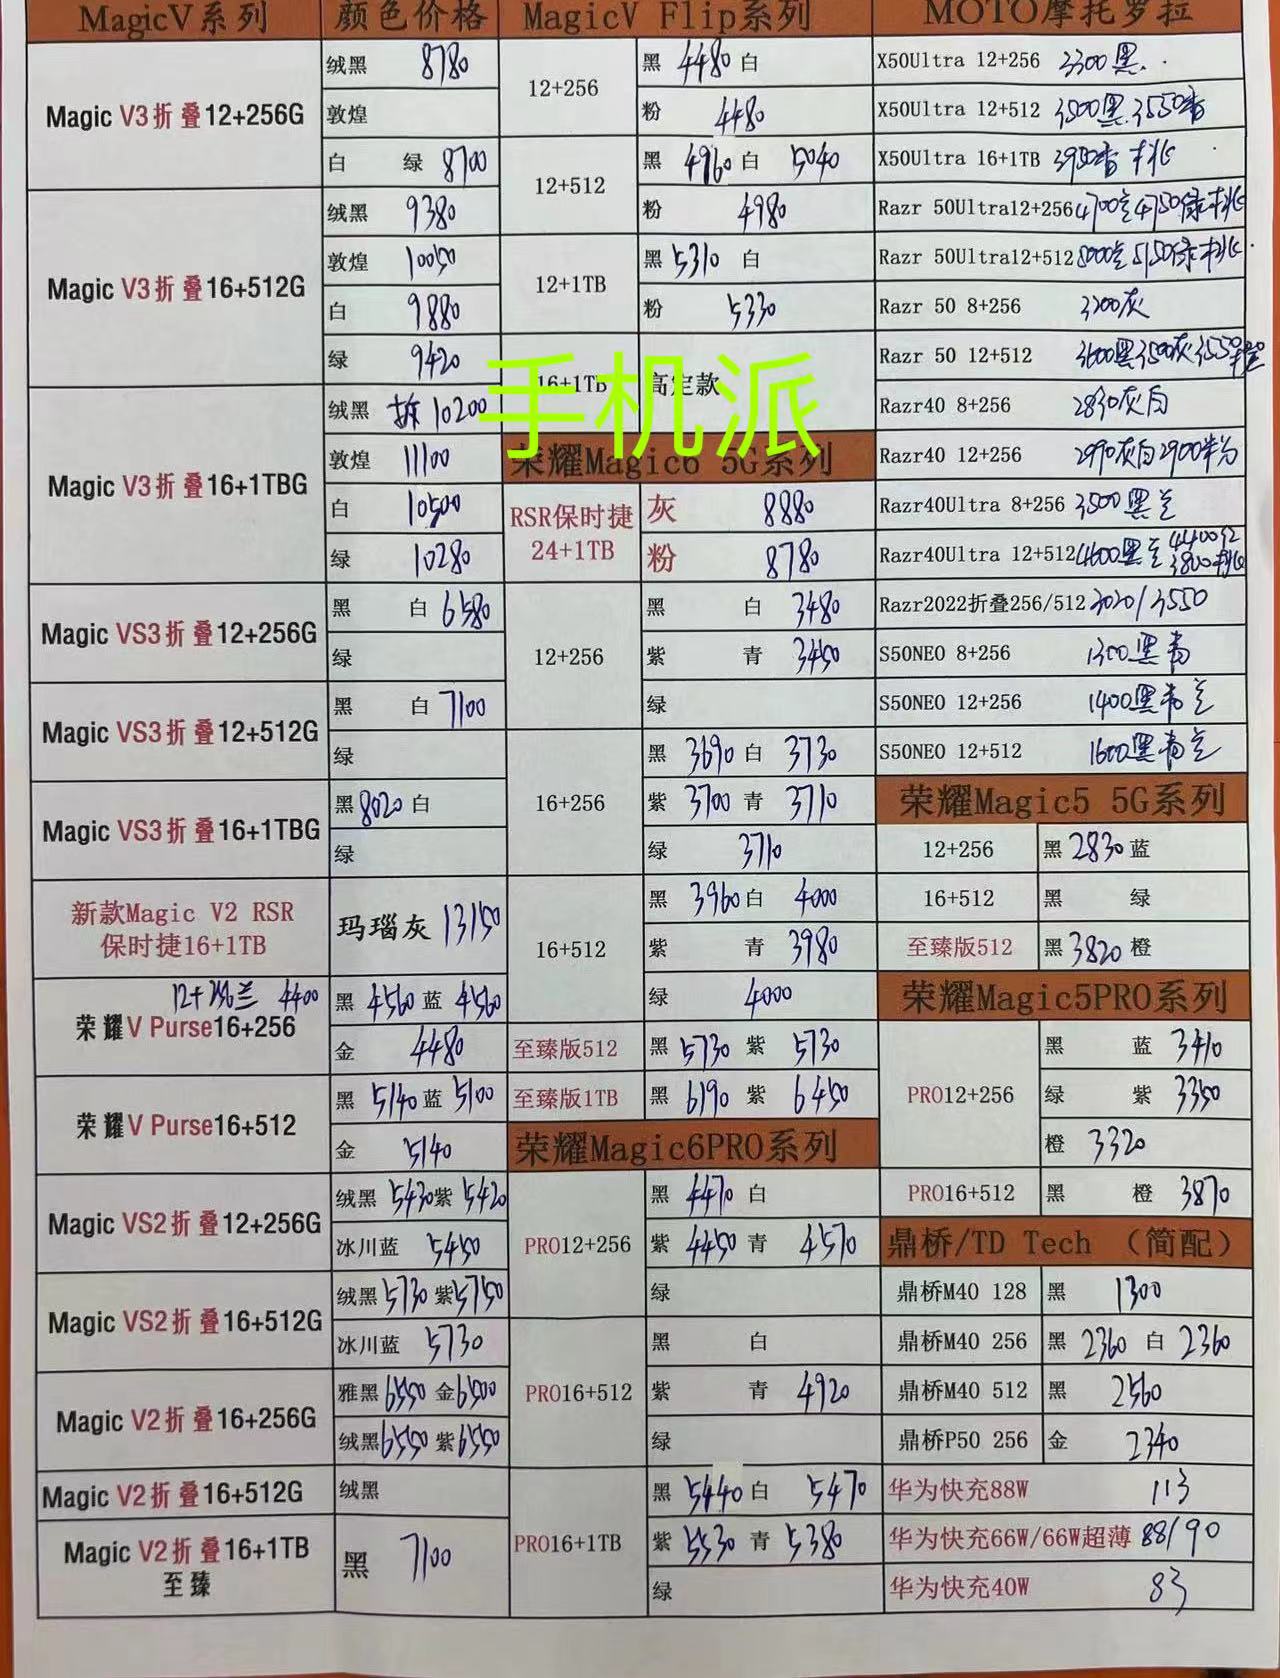 MagicV系列 颜色价格
Magic V3折叠12+256G 绒黑 8780
敦煌
白 绿 8700
Magic V3折叠16+512G 绒黑 9380
敦煌 10050
白 9880
绿 9420
Magic V3折叠16+1TBG 绒黑 拆 10200
敦煌 11100
白 10500
绿 10280
Magic VS3折叠12+256G 黑 白 6580
绿
Magic VS3折叠12+512G 黑 白 7100
绿
Magic VS3折叠16+1TBG 黑 8020 白
绿
新款Magic V2 RSR
保时捷16+1TB 玛瑙灰 13150
12+256兰 4400
荣耀V Purse16+256 黑 4560 蓝 4560
金 4480
荣耀V Purse16+512 黑 5140 蓝 5100
金 5140
Magic VS2折叠12+256G 绒黑 5430 紫 5420
冰川蓝 5450
Magic VS2折叠16+512G 绒黑 5730 紫 5750
冰川蓝 5730
Magic V2折叠16+256G 雅黑 6550 金 6500
绒黑 6550 紫 6550
Magic V2折叠16+512G 绒黑
Magic V2折叠16+1TB
至臻 黑 7100
MagicV Flip系列
12+256 黑 4480 白
粉 4480
12+512 黑 4960 白 5040
粉 4980
12+1TB 黑 5310 白
粉 5330
16+1TB 高定款
手机派
荣耀Magic6 5G系列
RSR保时捷
24+1TB 灰 8880
粉 8780
12+256 黑 白 3480
紫 青 3450
绿
16+256 黑 3690 白 3730
紫 3700 青 3710
绿 3710
16+512 黑 3960 白 4000
紫 青 3980
绿 4000
至臻版512 黑 5730 紫 5730
至臻版1TB 黑 6190 紫 6450
荣耀Magic6PRO系列
PRO12+256 黑 4470 白
紫 4450 青 4570
绿
PRO16+512 黑 白
紫 青 4920
绿
PRO16+1TB 黑 5440 白 5470
紫 5530 青 5380
绿
MOTO摩托罗拉
X50Ultra 12+256 3300黑
X50Ultra 12+512 3500黑 3550杏
X50Ultra 16+1TB 3950杏 桃
Razr 50Ultra12+256 4700兰 4750绿 桃
Razr 50Ultra12+512 5000兰 5150绿 桃
Razr 50 8+256 3200灰
Razr 50 12+512 3600黑 3500灰 3550
Razr40 8+256 2830灰白
Razr40 12+256 2990灰白 2900粉
Razr40Ultra 8+256 3500黑兰
Razr40Ultra 12+512 4600黑兰 4400红 3800桃
Razr2022折叠256/512 3020/3550
S50NEO 8+256 1300黑青
S50NEO 12+256 1400黑青兰
S50NEO 12+512 1600黑青兰
荣耀Magic5 5G系列
12+256 黑 2830 蓝
16+512 黑 绿
至臻版512 黑 3820 橙
荣耀Magic5PRO系列
PRO12+256 黑 蓝 3410
绿 紫 3350
橙 3320
PRO16+512 黑 橙 3870
鼎桥/TD Tech (简配)
鼎桥M40 128 黑 1300
鼎桥M40 256 黑 2360 白 2360
鼎桥M40 512 黑 2560
鼎桥P50 256 金 2340
华为快充88W 113
华为快充66W/66W超薄 88/90
华为快充40W 83